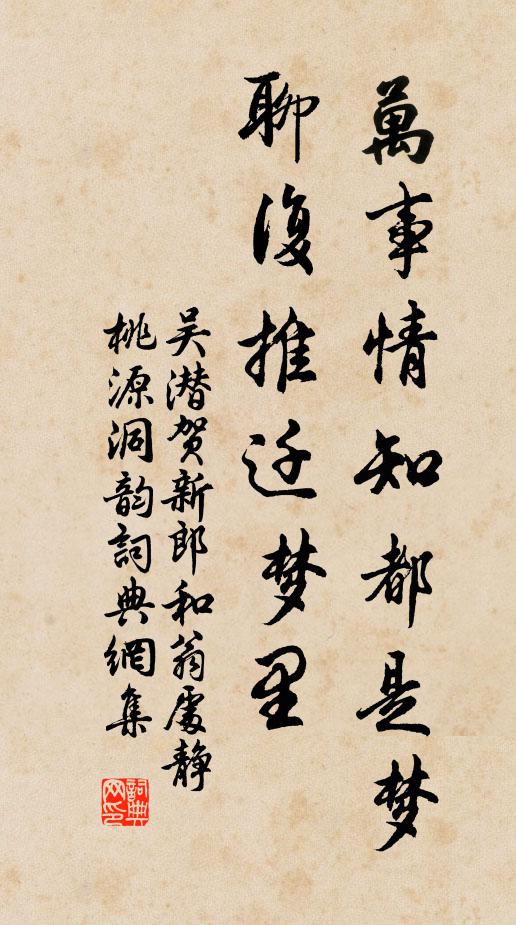 萬事情知都是梦
聊復推迁梦里
吴潜贺新郎和翁處静
桃源洞韵詞典網集
詞典网印